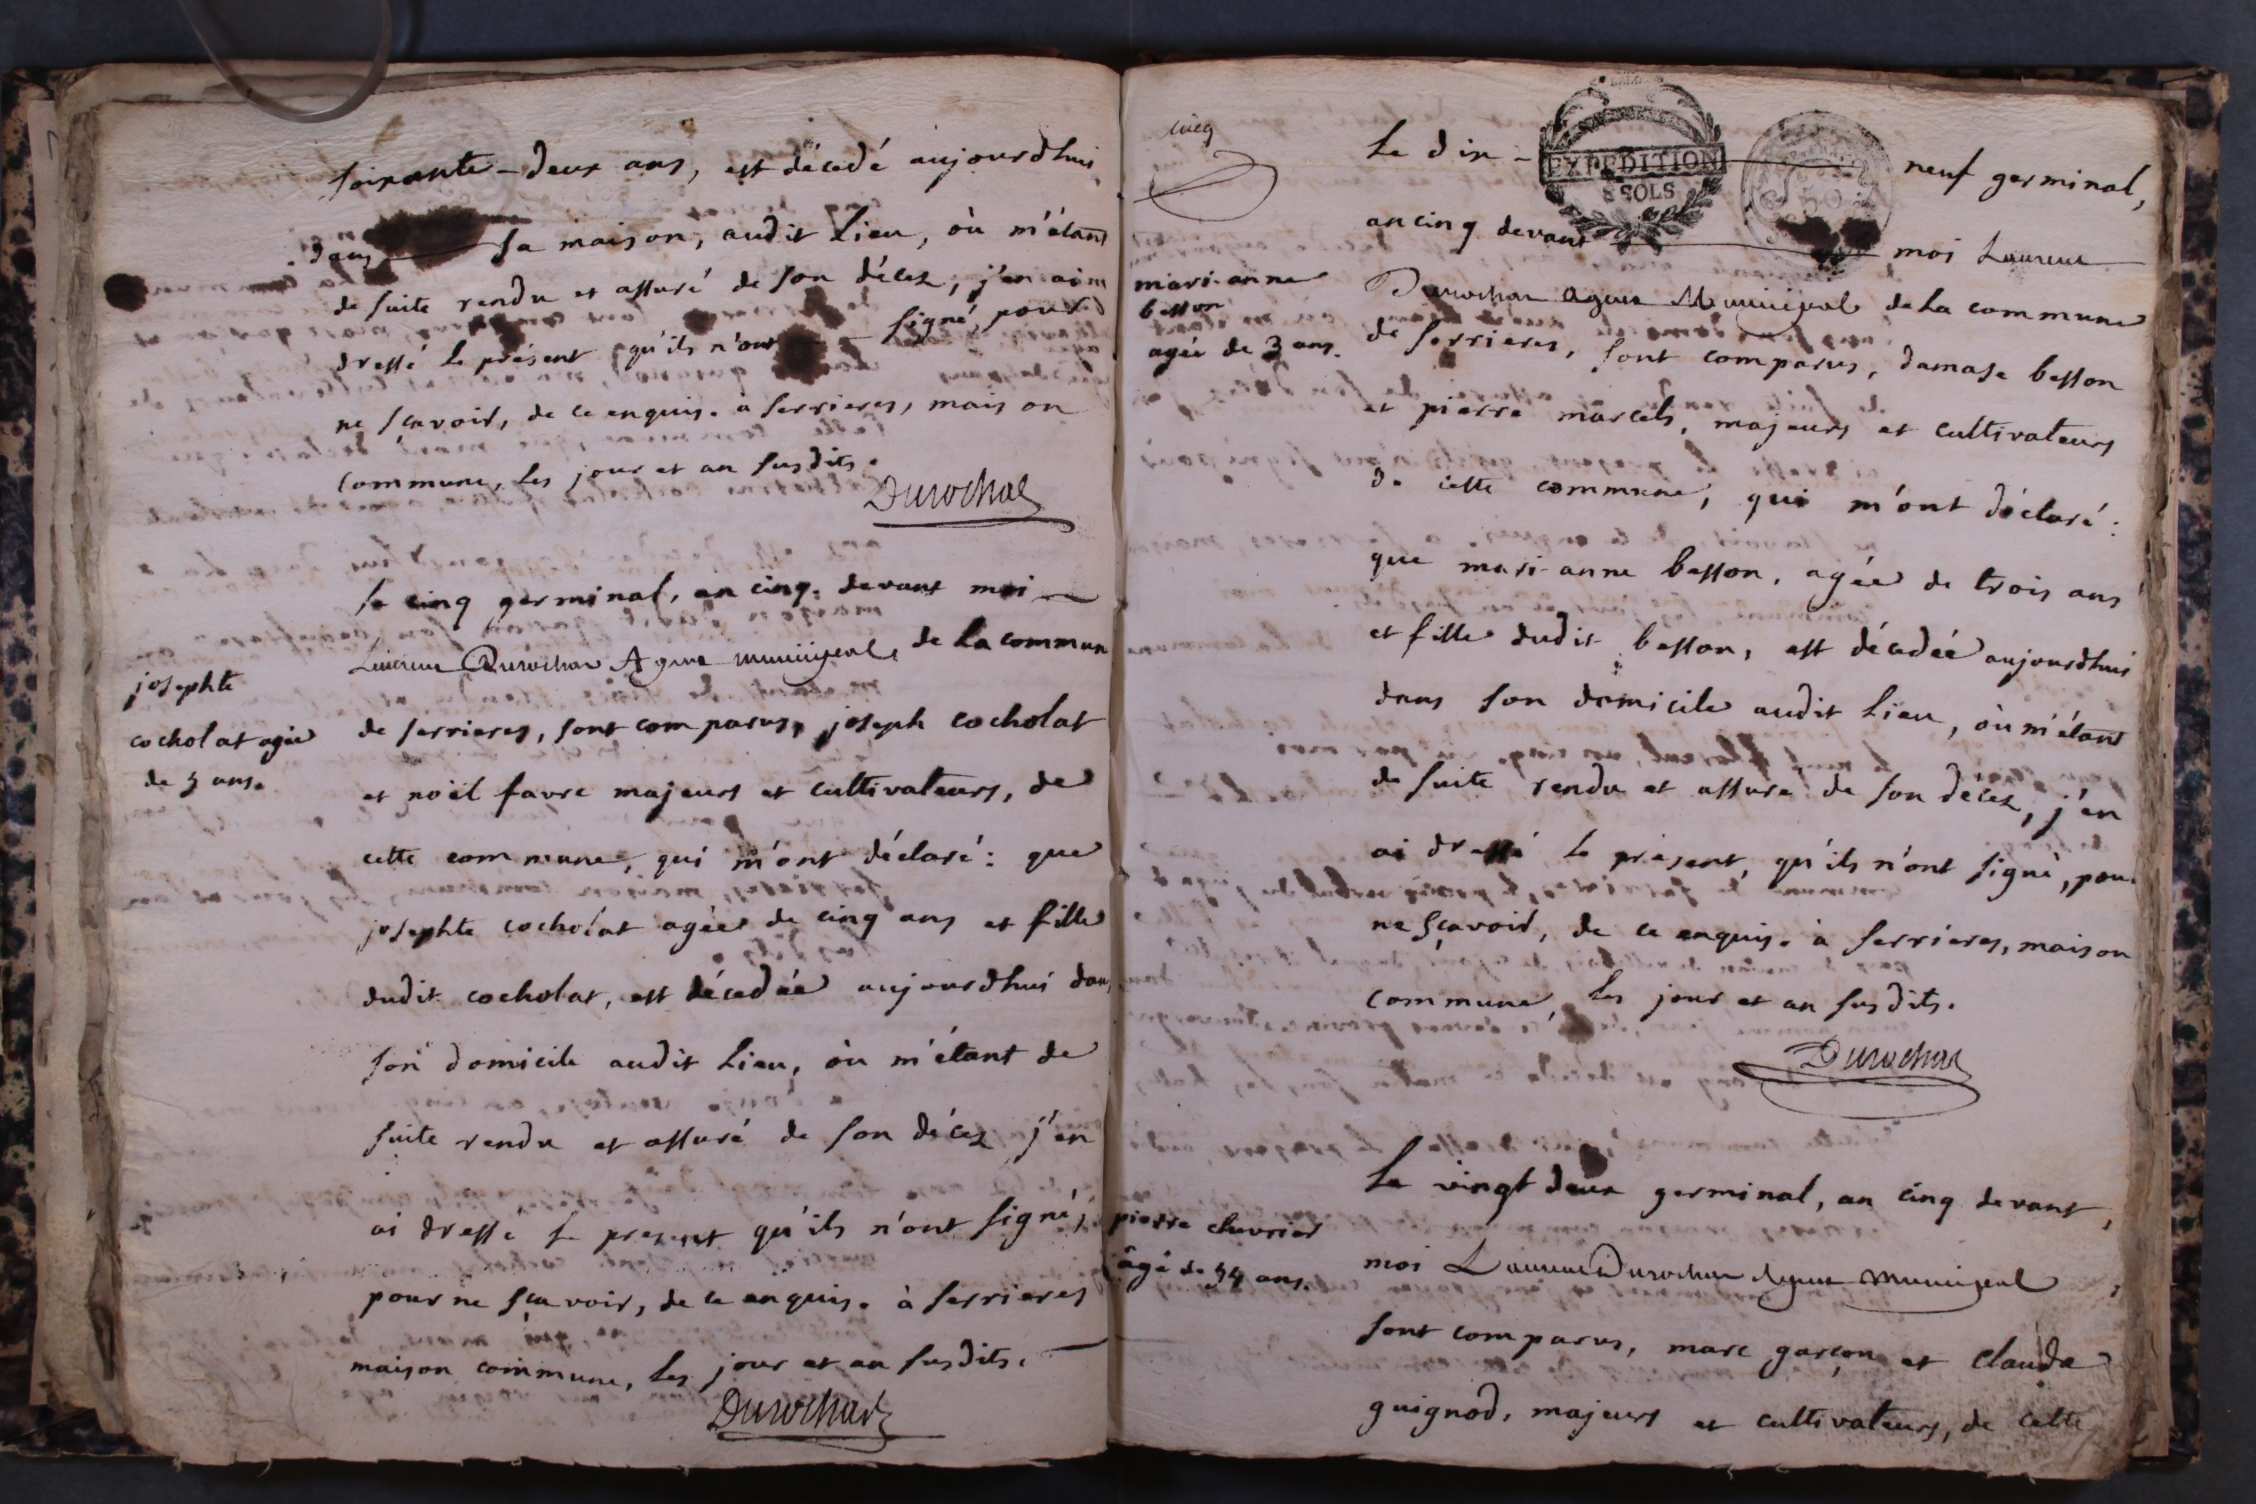 soixante-deux ans, est décédé aujourdhui
dans sa maison, audit Lieu, où m'étant
de suite rendu et assuré de son décez, j'en ai
dressé le présent, qu'ils n'ont signé, pour
ne sçavoir, de ce enquis. a serrieres, maison
commune, les jour et an susdits.
Durochat
le cinq germinal, an cinq. devant moi
Laurent Durochat Agent municipal, de la commune
josephte
cocholat agée
de 5 ans.
de serrieres, sont comparus, joseph cocholat
et noël favre majeurs et cultivateurs, de
cette commune, qui m'ont déclaré: que
josephte cocholat agée de cinq ans et fille
dudit cocholat, est décedée aujourdhui dans
son domicile audit Lieu, où m'étant de
suite rendu et assuré de son décez j'en
ai dressé le present qu'ils n'ont signé,
pour ne sçavoir, de ce enquis. à serrieres
maison commune, les jour et an susdits.
Durochat
cinq
EXPEDITION
8 SOLS
50
Le dix- neuf germinal,
an cinq devant moi Laurent
mari-anne
besson
agée de 3 ans.
Durochat agent Municipal de la commune
de serrieres, sont comparus, damase besson
et pierre marcels, majeurs et cultivateurs
de cette commune, qui m'ont déclaré:
que mari-anne besson, agée de trois ans
et fille dudit besson, est décedée aujourdhui
dans son domicile audit Lieu, où m'étant
de suite rendu et assuré de son décez, j'en
ai dressé le present, qu'ils n'ont signé, pour
ne sçavoir, de ce enquis. à serrieres, maison
commune, les jour et an susdits.
Durochat
Le vingt deux germinal, an cinq devant,
pierre chevrier
âgé de 54 ans.
moi Laurent Durochat Agent municipal
sont comparus, marc garçon et Claude
guignod, majeurs et cultivateurs, de cette